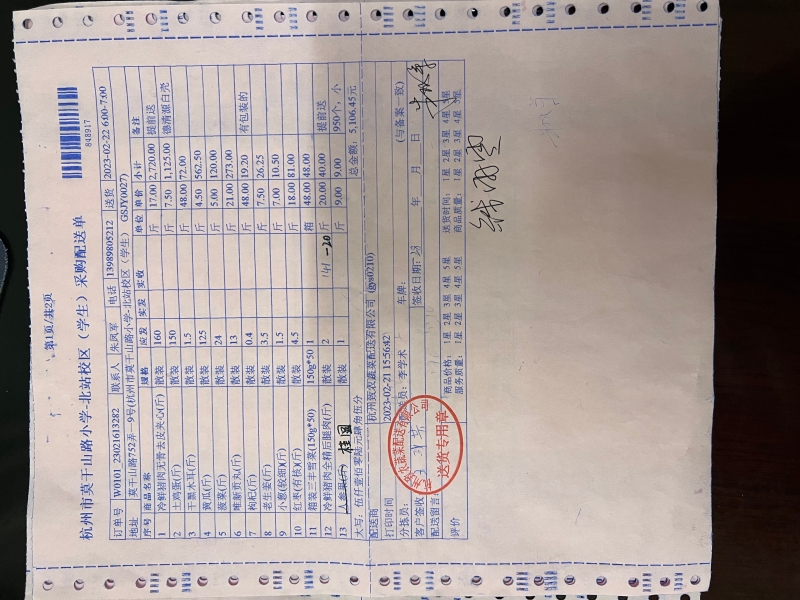 第1页/共2页
杭州市莫干山路小学-北站校区(学生)采购配送单
848917
订单号 W0101_23021613282 联系人 朱凤军 电话 13989805212 送货 2023-02-22 6:00-7:00
地址 莫干山路752弄一9号(杭州市莫干山路小学-北站校区(学生) GSJY0027)
序号 商品名称 规格 应发 实发 实收 单位 单价 小计 备注
1 冷鲜猪肉无骨去皮夹心(斤) 散装 160 斤 17.00 2,720.00 提前送
2 土鸡蛋(斤) 散装 150 斤 7.50 1,125.00 德清源白壳
3 干黑木耳(斤) 散装 1.5 斤 48.00 72.00
4 黄瓜(斤) 散装 125 斤 4.50 562.50
5 菠菜(斤) 散装 24 斤 5.00 120.00
6 唯新贡丸(斤) 散装 13 斤 21.00 273.00
7 枸杞(斤) 散装 0.4 斤 48.00 19.20 有包装的
8 老生姜(斤) 散装 3.5 斤 7.50 26.25
9 小葱(较细)(斤) 散装 1.5 斤 7.00 10.50
10 红枣(有核)(斤) 散装 4.5 斤 18.00 81.00
11 箱装三丰雪菜(150g*50) 150g*50 1 箱 48.00 48.00
12 冷鲜猪肉全精后腿肉(斤) 散装 2 斤 20.00 40.00 提前送
13 桂圆 散装 1 -20 斤 9.00 9.00 950个,小
大写:伍仟壹佰零陆元肆角伍分 总金额:5,106.45元
配送商 杭州贺农蔬菜配送有限公司(gys0210)
打印时间 2023-02-21 15:56:42
分拣员: 配送员:李学术 车牌: (与备案一致)
客户签收 签收日期: 年 月 日
配送留言
送货专用章
评价 商品价格: 1星 2星 3星 4星 5星 送货时间: 1星 2星 3星 4星 5星
服务质量: 1星 2星 3星 4星 5星 商品质量: 1星 2星 3星 4星 5星